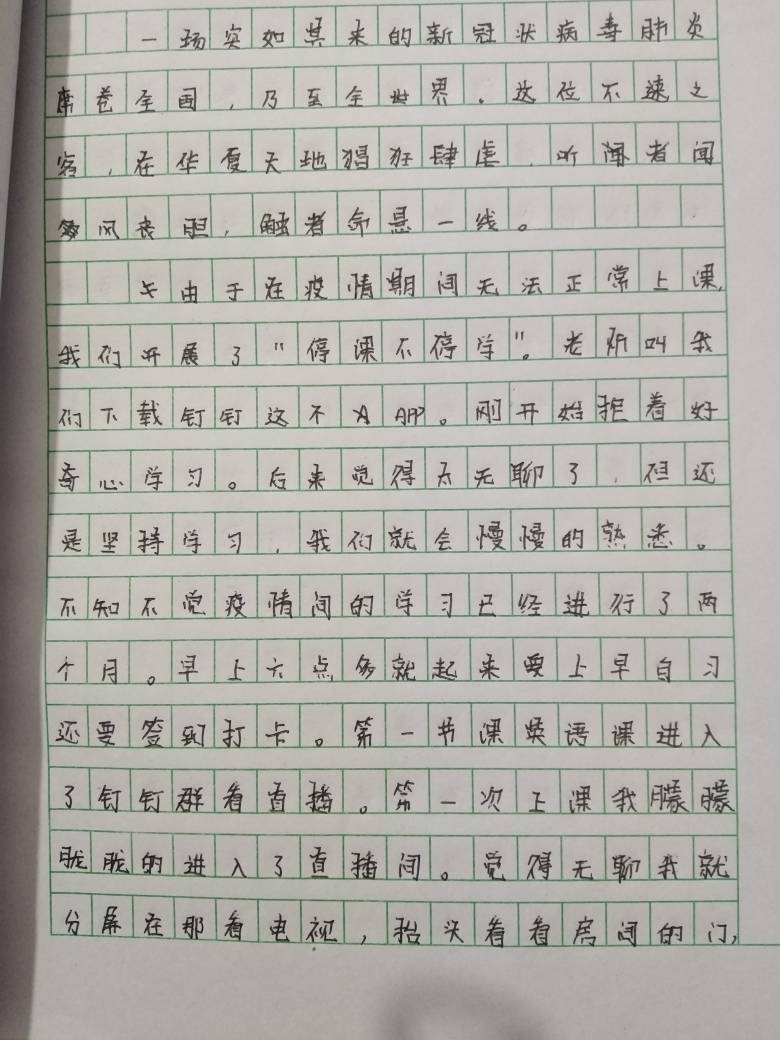 一场突如其来的新冠状病毒肺炎
席卷全国，乃至全世界。这位不速之
客，在华夏天地猖狂肆虐，听闻者闻
风丧胆，触者命悬一线。
由于在疫情期间无法正常上课，
我们开展了"停课不停学"。老师叫我
们下载钉钉这个APP。刚开始抱着好
奇心学习。后来觉得太无聊了，但还
是坚持学习，我们就会慢慢的熟悉。
不知不觉疫情间的学习已经进行了两
个月。早上六点多就起来要上早自习
还要签到打卡。第一节课英语课进入
了钉钉群看直播。第一次上课我朦朦
胧胧的进入了直播间。觉得无聊我就
分屏在那看电视，抬头看看房间的门，